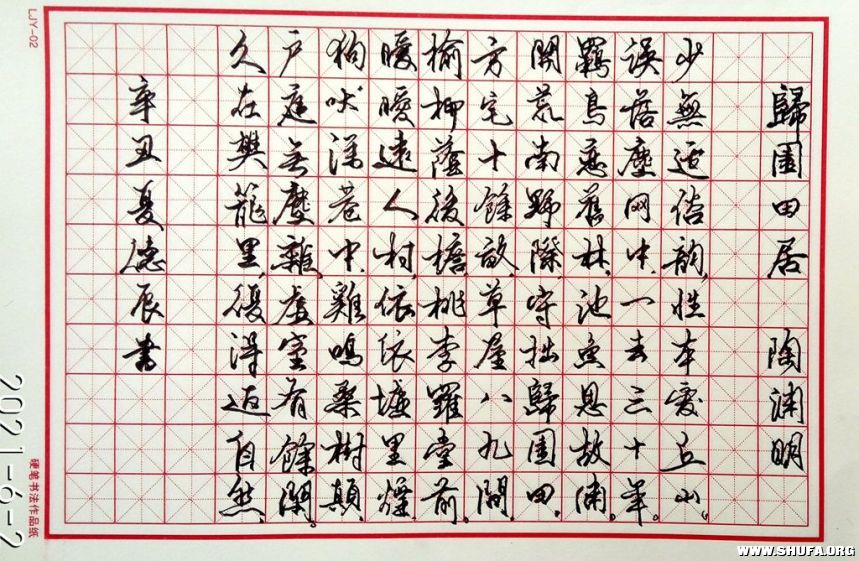 歸園田居 陶渊明
少無适俗韵,性本愛丘山。
误落塵网中,一去三十年。
羈鳥戀舊林,池魚思故渊。
開荒南野際,守拙歸園田。
方宅十餘畝,草屋八九間。
榆柳蔭後檐,桃李羅堂前。
曖曖遠人村,依依墟里煙。
狗吠深巷中,雞鳴桑樹顛。
户庭無塵雜,虚室有餘閑。
久在樊籠里,復得返自然。
辛丑夏德辰書
LJY-02
硬笔书法作品纸
2021-6-2
WWW.SHUFA.ORG